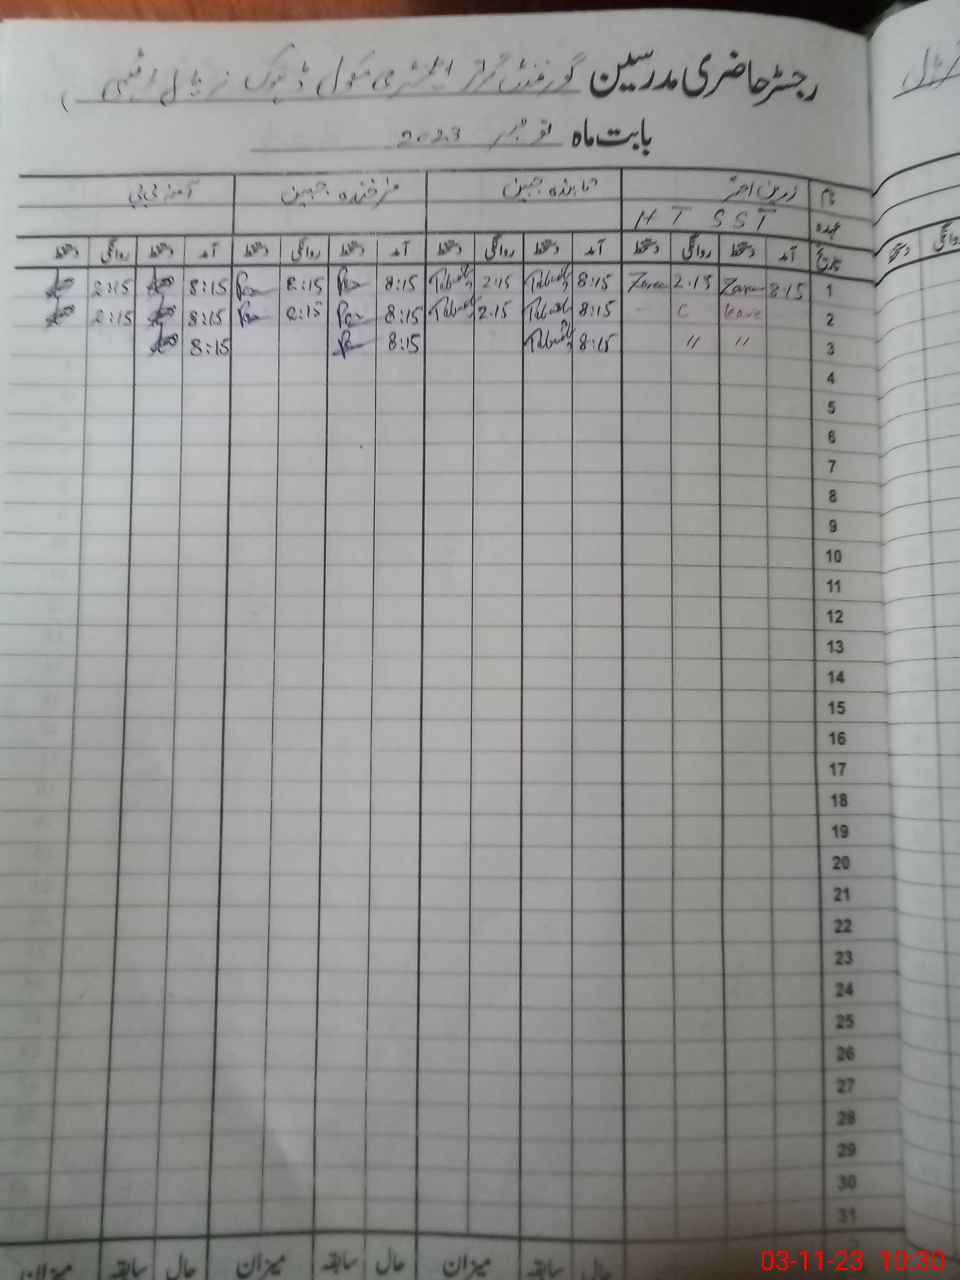 رجسٹر حاضری مدرسین گورنمنٹ گرلز ایلیمنٹری سکول ڈھوک
بابت ماہ نومبر 2023
نام زرین اختر تابندہ جبین فرخندہ جبین آمنہ بی بی
عہدہ H T SST
تاریخ آمد دستخط روانگی دستخط آمد دستخط روانگی دستخط آمد دستخط روانگی دستخط آمد دستخط روانگی دستخط
1 8:15 Zareen 2:15 Zareen 8:15 2:15 8:15 2:15 8:15 2:15
2 leave C 8:15 2:15 8:15 2:15 8:15 2:15
3 〃 〃 8:15 8:15 8:15
4
5
6
7
8
9
10
11
12
13
14
15
16
17
18
19
20
21
22
23
24
25
26
27
28
29
30
31
حال سابقہ میزان حال سابقہ میزان حال سابقہ میزان
03-11-23 10:30